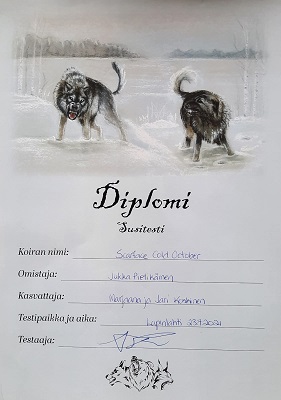 Diplomi
Susitesti
Koiran nimi: Scarface Cold October
Omistaja: Jukka Pietikäinen
Kasvattaja: Marjaana ja Jari Koskinen
Testipaikka ja aika: Lapinlahti 23.9.2021
Testaaja: